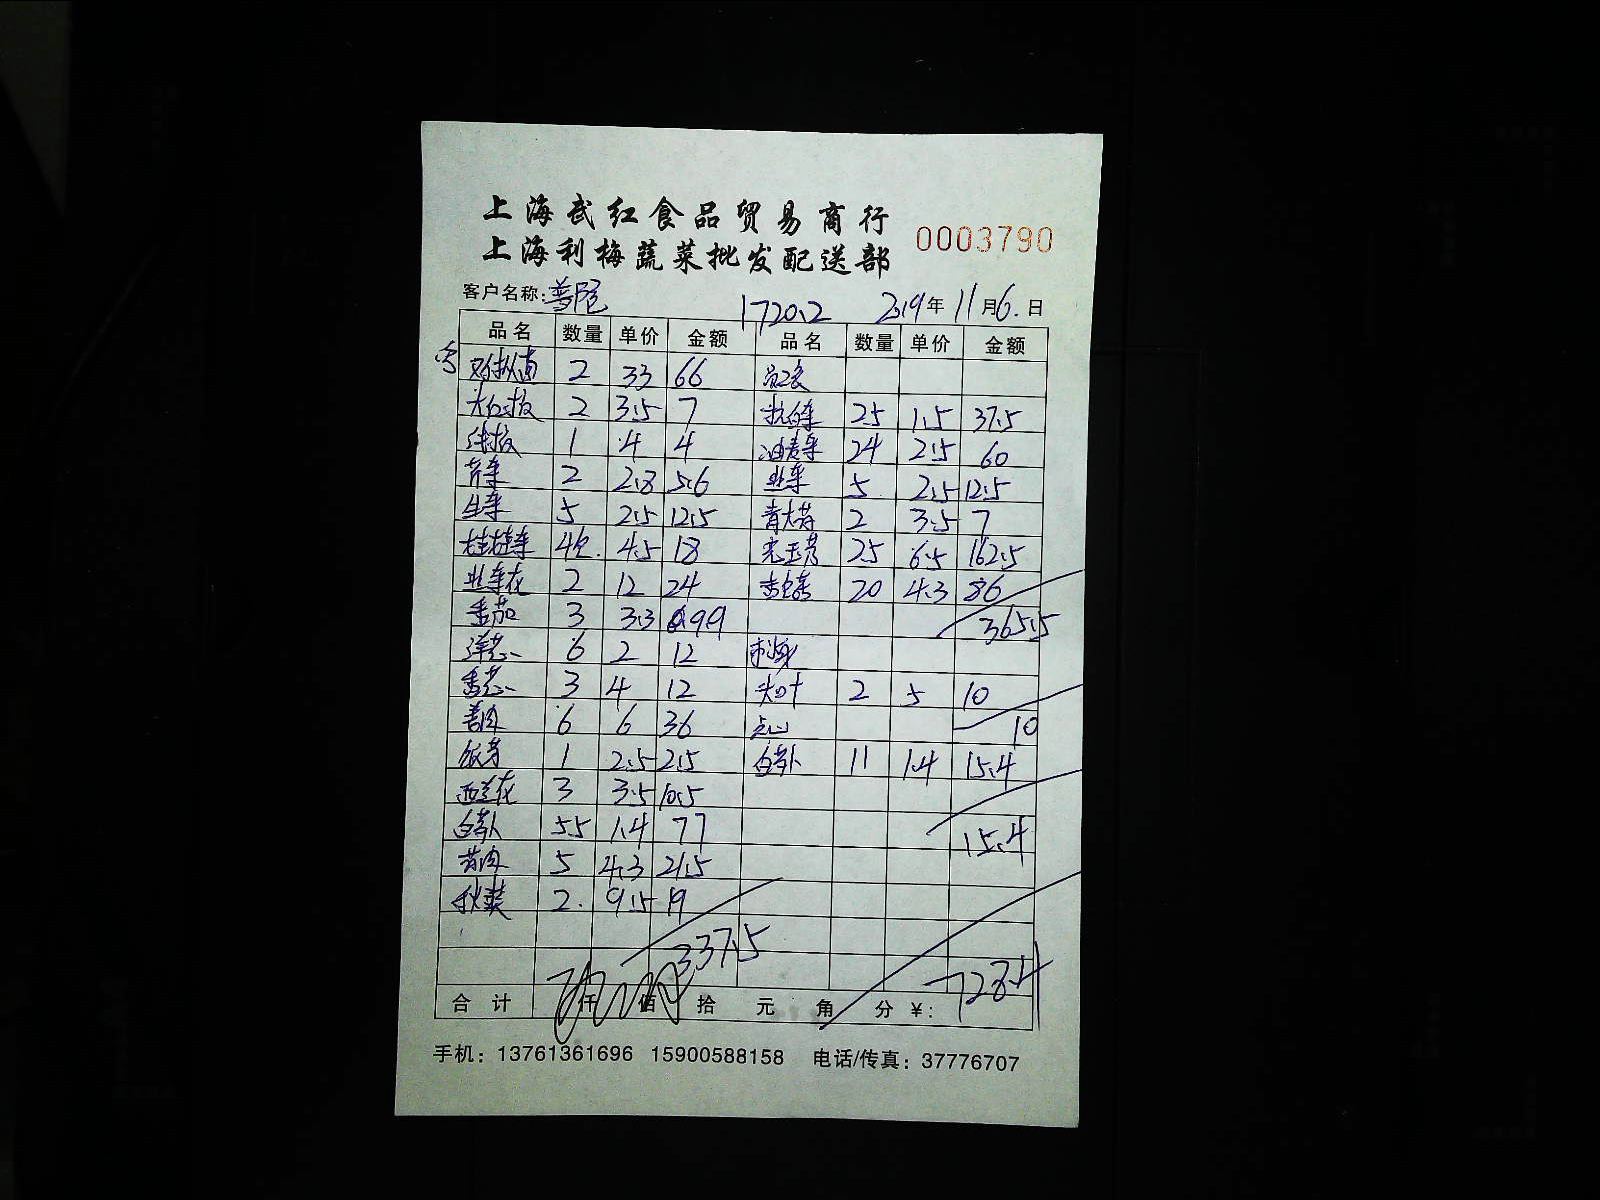 上海武红食品贸易商行
上海利梅蔬菜批发配送部
0003790
客户名称:普陀 1720.2 2019年11月6.日
品名 数量 单价 金额 品名 数量 单价 金额
2 33 66
大红椒 2 3.5 7 25 1.5 37.5
线椒 1 4 4 油麦菜 24 2.5 60
芹菜 2 2.8 5.6 韭菜 5 2.5 12.5
生菜 5 2.5 12.5 青大蒜 2 3.5 7
4.5 18 25 6.5 162.5
韭菜花 2 12 24 20 4.3 86
番茄 3 3.3 9.9 365.5
洋葱 6 2 12 刺身
香葱 3 4 12 2 5 10
姜肉 6 6 36 点心 10
1 2.5 2.5 白萝卜 11 1.4 15.4
西兰花 3 3.5 10.5
白萝卜 55 1.4 77 15.4
5 4.3 21.5
2. 9.5 19
337.5
合计 仟 佰 拾 元 角 分 ¥: 728.4
手机：13761361696 15900588158 电话/传真：37776707